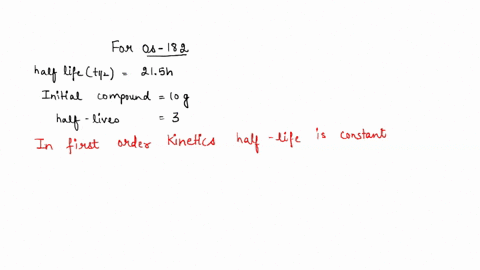 For Os-182
half life (t1/2) = 21.5h
Initial compound = 10 g
half-lives = 3
In first order Kinetics half-life is constant